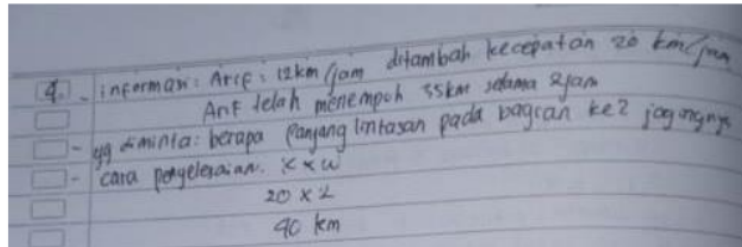 4. - informasi : Arif : 12km/jam ditambah kecepatan 20 km/jam
Arif telah menempuh 35km selama 2jam
- yg diminta : berapa panjang lintasan pada bagian ke2 jogingnya
- cara penyelesaian. K x W
20 x 2
40 km